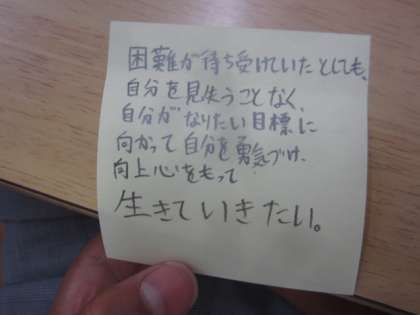 困難が待ち受けていたとしても、
自分を見失うことなく、
自分がなりたい目標に
向かって自分を勇気づけ、
向上心をもって
生きていきたい。